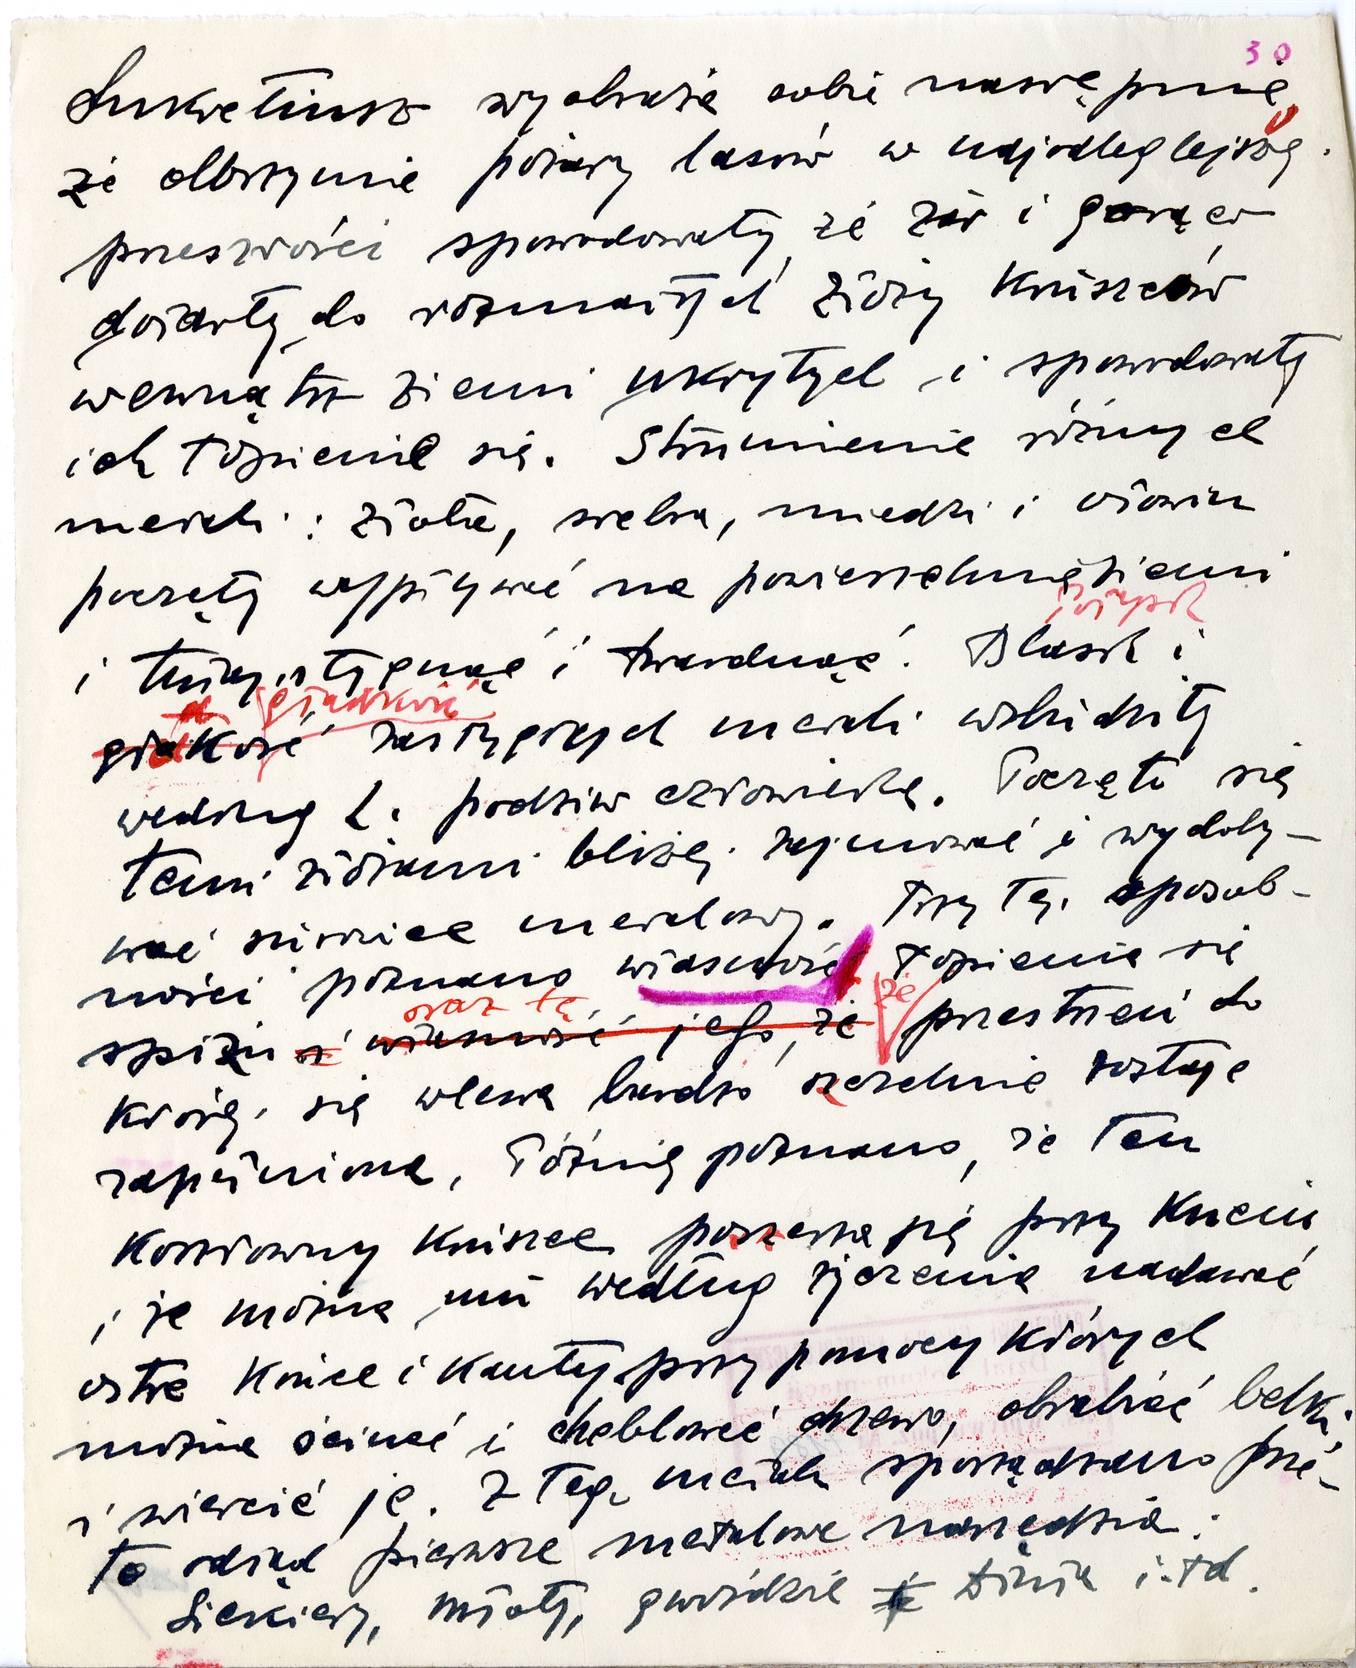 30
Lukretiusz wyobraża sobie następnie
że olbrzymie pożary lasów w najodleglejszej
przeszłości spowodowały, że żar i gorąco
dotarły do rozmaitych złóży kruszców
wewnątrz ziemi ukrytych i spowodowały
ich topienie się. Strumienie różnych
metali: złota, srebra, miedzi i ołowiu
poczęły wypływać na powierzchnię ziemi
i tutaj stygnąć i twardnąć. Blask i
połysk
gładkość
głakość zastygłych metali wzbudziły
według L. podziw człowieka. Poczęto się
temi złożami bliżej zajmować i wydoby-
wać surowiec metalowy. Przy tej sposob-
ności poznano własność topienia się
oraz tę że
spiżu i własność jego, że przestrzeń do
której się wlewa bardzo szczelnie zostaje
zapełniona. Później poznano, że ten
kosztowny kruszec poszerza się przy kuciu
i że można mu według życzenia nadawać
ostre końce i kanty, przy pomocy których
można ścinać i cheblować drzewo, obrabiać belki
i wiercić je. Z tego metalu sporządzano prze-
to odtąd pierwsze metalowe narzędzia:
Siekiery, młoty, gwoździe dłuta i.t.d.